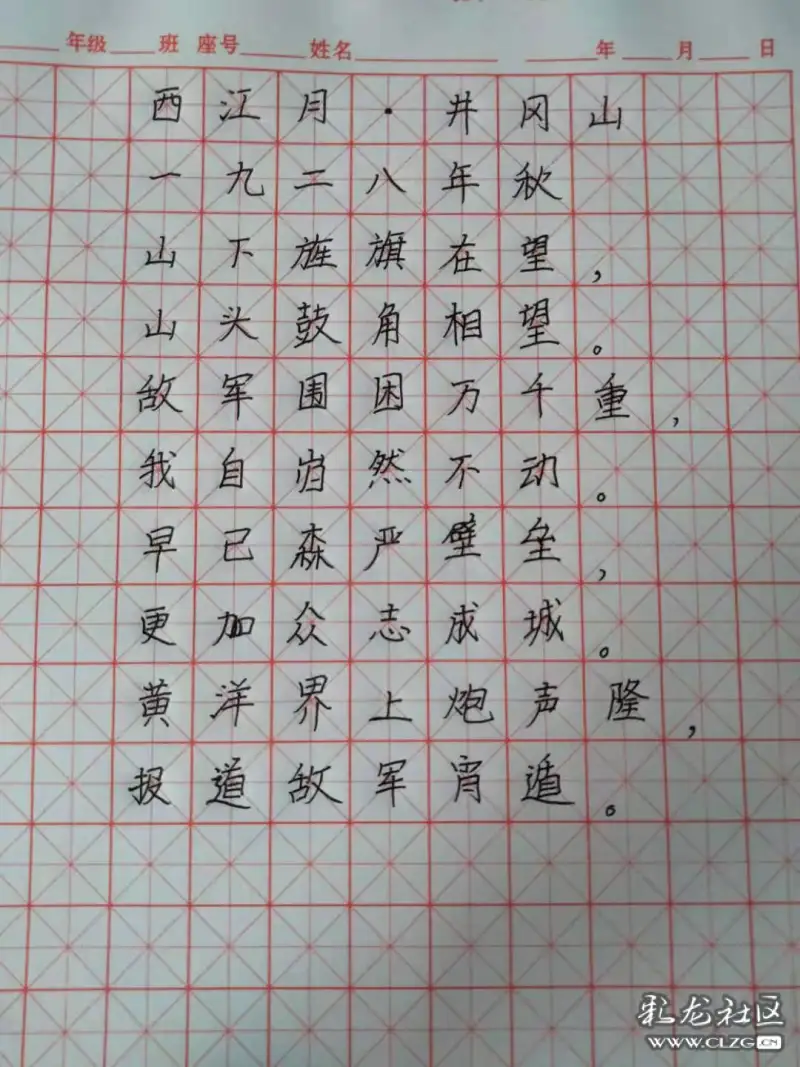 年级 班 座号 姓名 年 月 日
西江月·井冈山
一九二八年秋
山下旌旗在望，
山头鼓角相望。
敌军围困万千重，
我自岿然不动。
早已森严壁垒，
更加众志成城。
黄洋界上炮声隆，
报道敌军宵遁。
彩龙社区
WWW.CLZG.CN